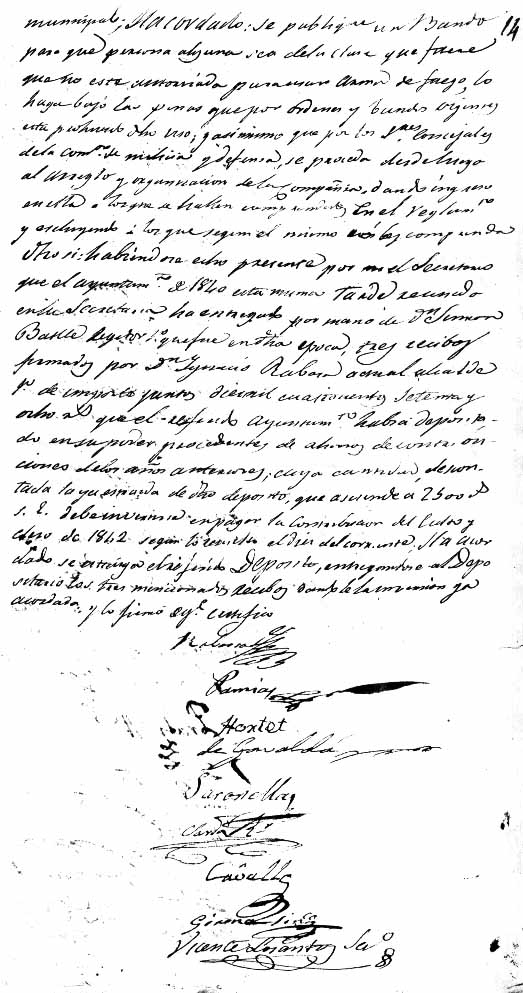 municipal; Ha acordado: se publique un Bando 14
para que persona alguna sea de la clase que fuere
que no este autorizada para usar Arma de fuego, lo
haga bajo las penas que por ordenes y bandos vigentes
esta prohivido dho uso; y asimismo que por los Sres. Concejales
de la Comon. de milicia y defensa, se proceda desde luego
al arreglo y organizacion de la Compañia, dando ingreso
en ella a los que se hallen comprendidos en el Reglamto
y escluyendo a los que segun el mismo no les comprenda
Otro si: habiendose echo presente por mi el Secretario
que el ayuntamto. de 1840 esta misma tarde reunido
en la Secretaria ha entregado por mano de Dn. Simon
Batlle Regidor 1o. que fue en dha epoca, tres recibos
firmados por Dn. Ygnacio Rabasa actual alcalde
1o. de importe juntos diez mil cuatrocientos setenta y
ocho rs que el referido Ayuntamto habia deposita-
do en su poder procedentes de ahorros de contribu-
ciones de los años anteriores; cuya cantidad, descon-
tada la ya estraida de dho deposito, que asciende a 2500 rs
S. E. debe invertirse en pagar la Contribucion del Culto y
Clero de 1842 segun lo resuelto el dia del corriente; Ha acor
dado se estraiga el referido Deposito, entregandose al Depo
sitario los tres mencionados recibos dandole la inversion ya
acordada: y lo firmó de qe. Certifico
Rabasa
Ramia
Hortet
de Govaldá
Saronella
Caballé
Girona
Vicente Srio